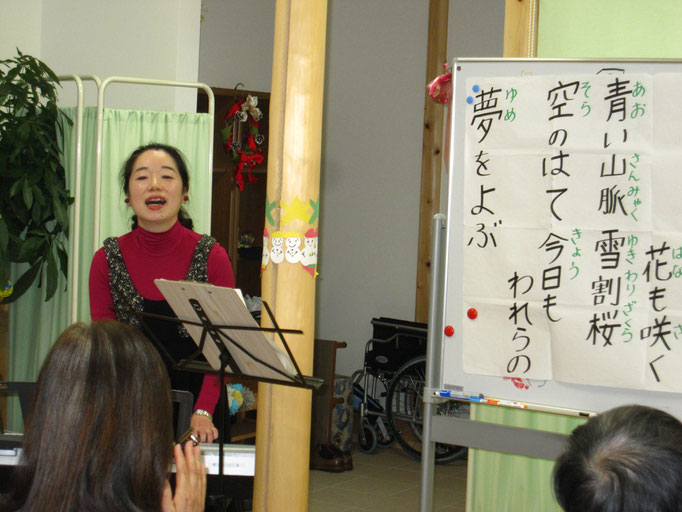 はな さ
花も咲く
あお さんみゃく ゆきわりざくら
青い山脈 雪割桜
そら きょう
空のはて 今日も
われらの
ゆめ
夢をよぶ